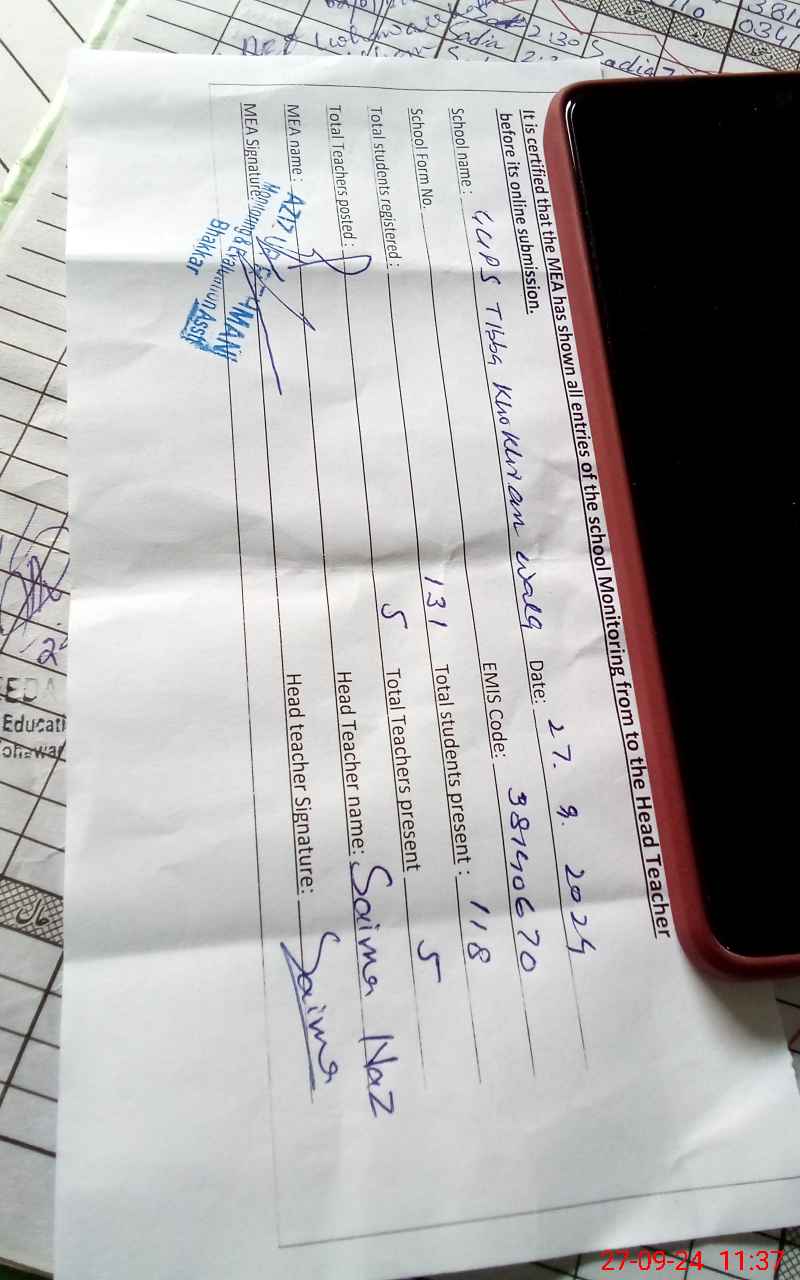 It is certified that the MEA has shown all entries of the school Monitoring from to the Head Teacher
before its online submission.
School name: GGPS Tibba Khokhran wala Date: 27. 9. 2024
School Form No. EMIS Code: 38140670
Total students registered: 131 Total students present: 118
Total Teachers posted: 5 Total Teachers present 5
MEA name: Head Teacher name: Saima Naz
MEA Signature: Head teacher Signature: Saima
Monitoring & Evaluation Asstt
Bhakkar
2:30 Sadia
Sadia
Educati
حال
27-09-24 11:37